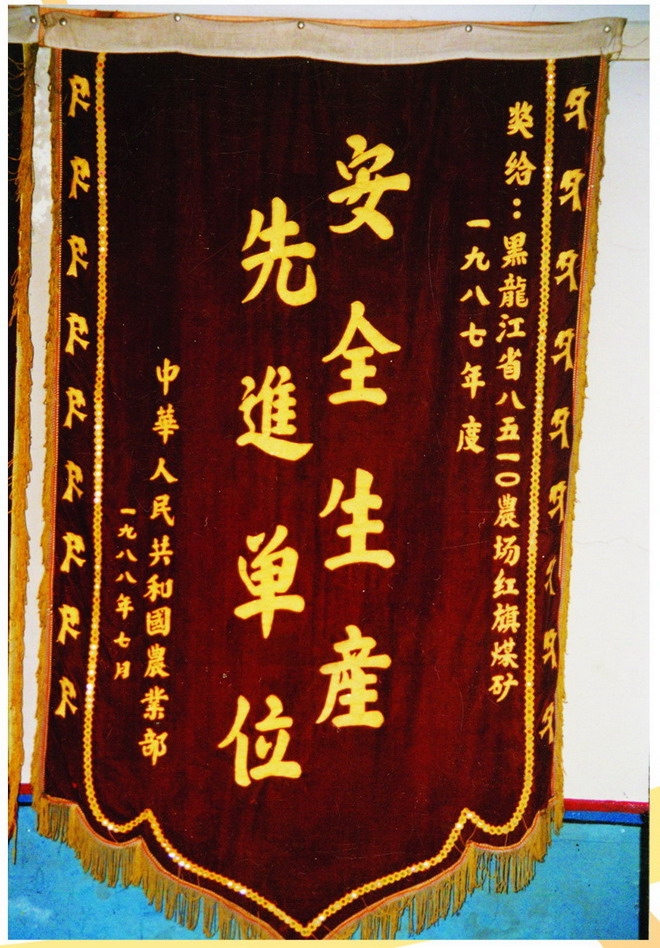 奖给：黑龍江省八五一〇農场红旗煤矿
一九八七年度
安全生産
先進单位
中華人民共和國農業部
一九八八年七月